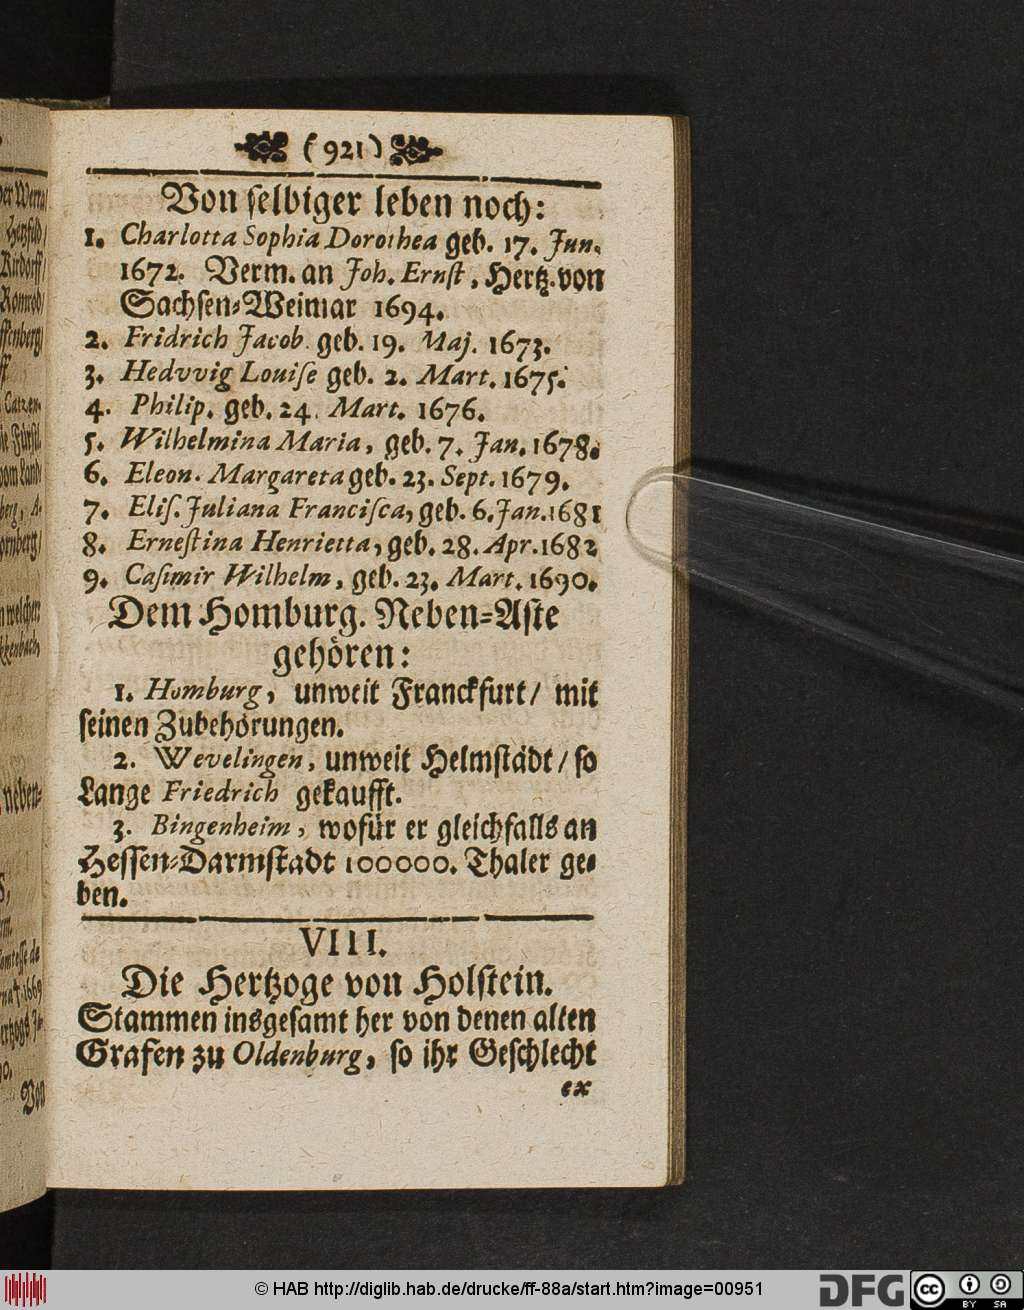 (921)
Von ſelbiger leben noch:
1. Charlotta Sophia Dorothea geb. 17. Jun.
1672. Verm. an Joh. Ernſt, Hertz. von
Sachſen-Weimar 1694.
2. Fridrich Jacob. geb. 19. Maj. 1673.
3. Hedvvig Louiſe geb. 2. Mart. 1675.
4. Philip. geb. 24. Mart. 1676.
5. Wilhelmina Maria, geb. 7. Jan. 1678.
6. Eleon. Margareta geb. 23. Sept. 1679.
7. Eliſ. Juliana Franciſca, geb. 6. Jan. 1681
8. Erneſtina Henrietta, geb. 28. Apr. 1682
9. Caſimir Wilhelm, geb. 23. Mart. 1690.
Dem Homburg. Neben-Aſte
gehören:
1. Homburg, unweit Franckfurt/ mit
ſeinen Zubehörungen.
2. Wevelingen, unweit Helmſtädt/ ſo
Lange Friedrich gekaufft.
3. Bingenheim, wofür er gleichfalls an
Heſſen-Darmſtadt 100000. Thaler ge-
ben.
VIII.
Die Hertzoge von Holſtein.
Stammen insgeſamt her von denen alten
Grafen zu Oldenburg, ſo ihr Geſchlecht
ex
© HAB http://diglib.hab.de/drucke/ff-88a/start.htm?image=00951
DFG
cc
BY SA